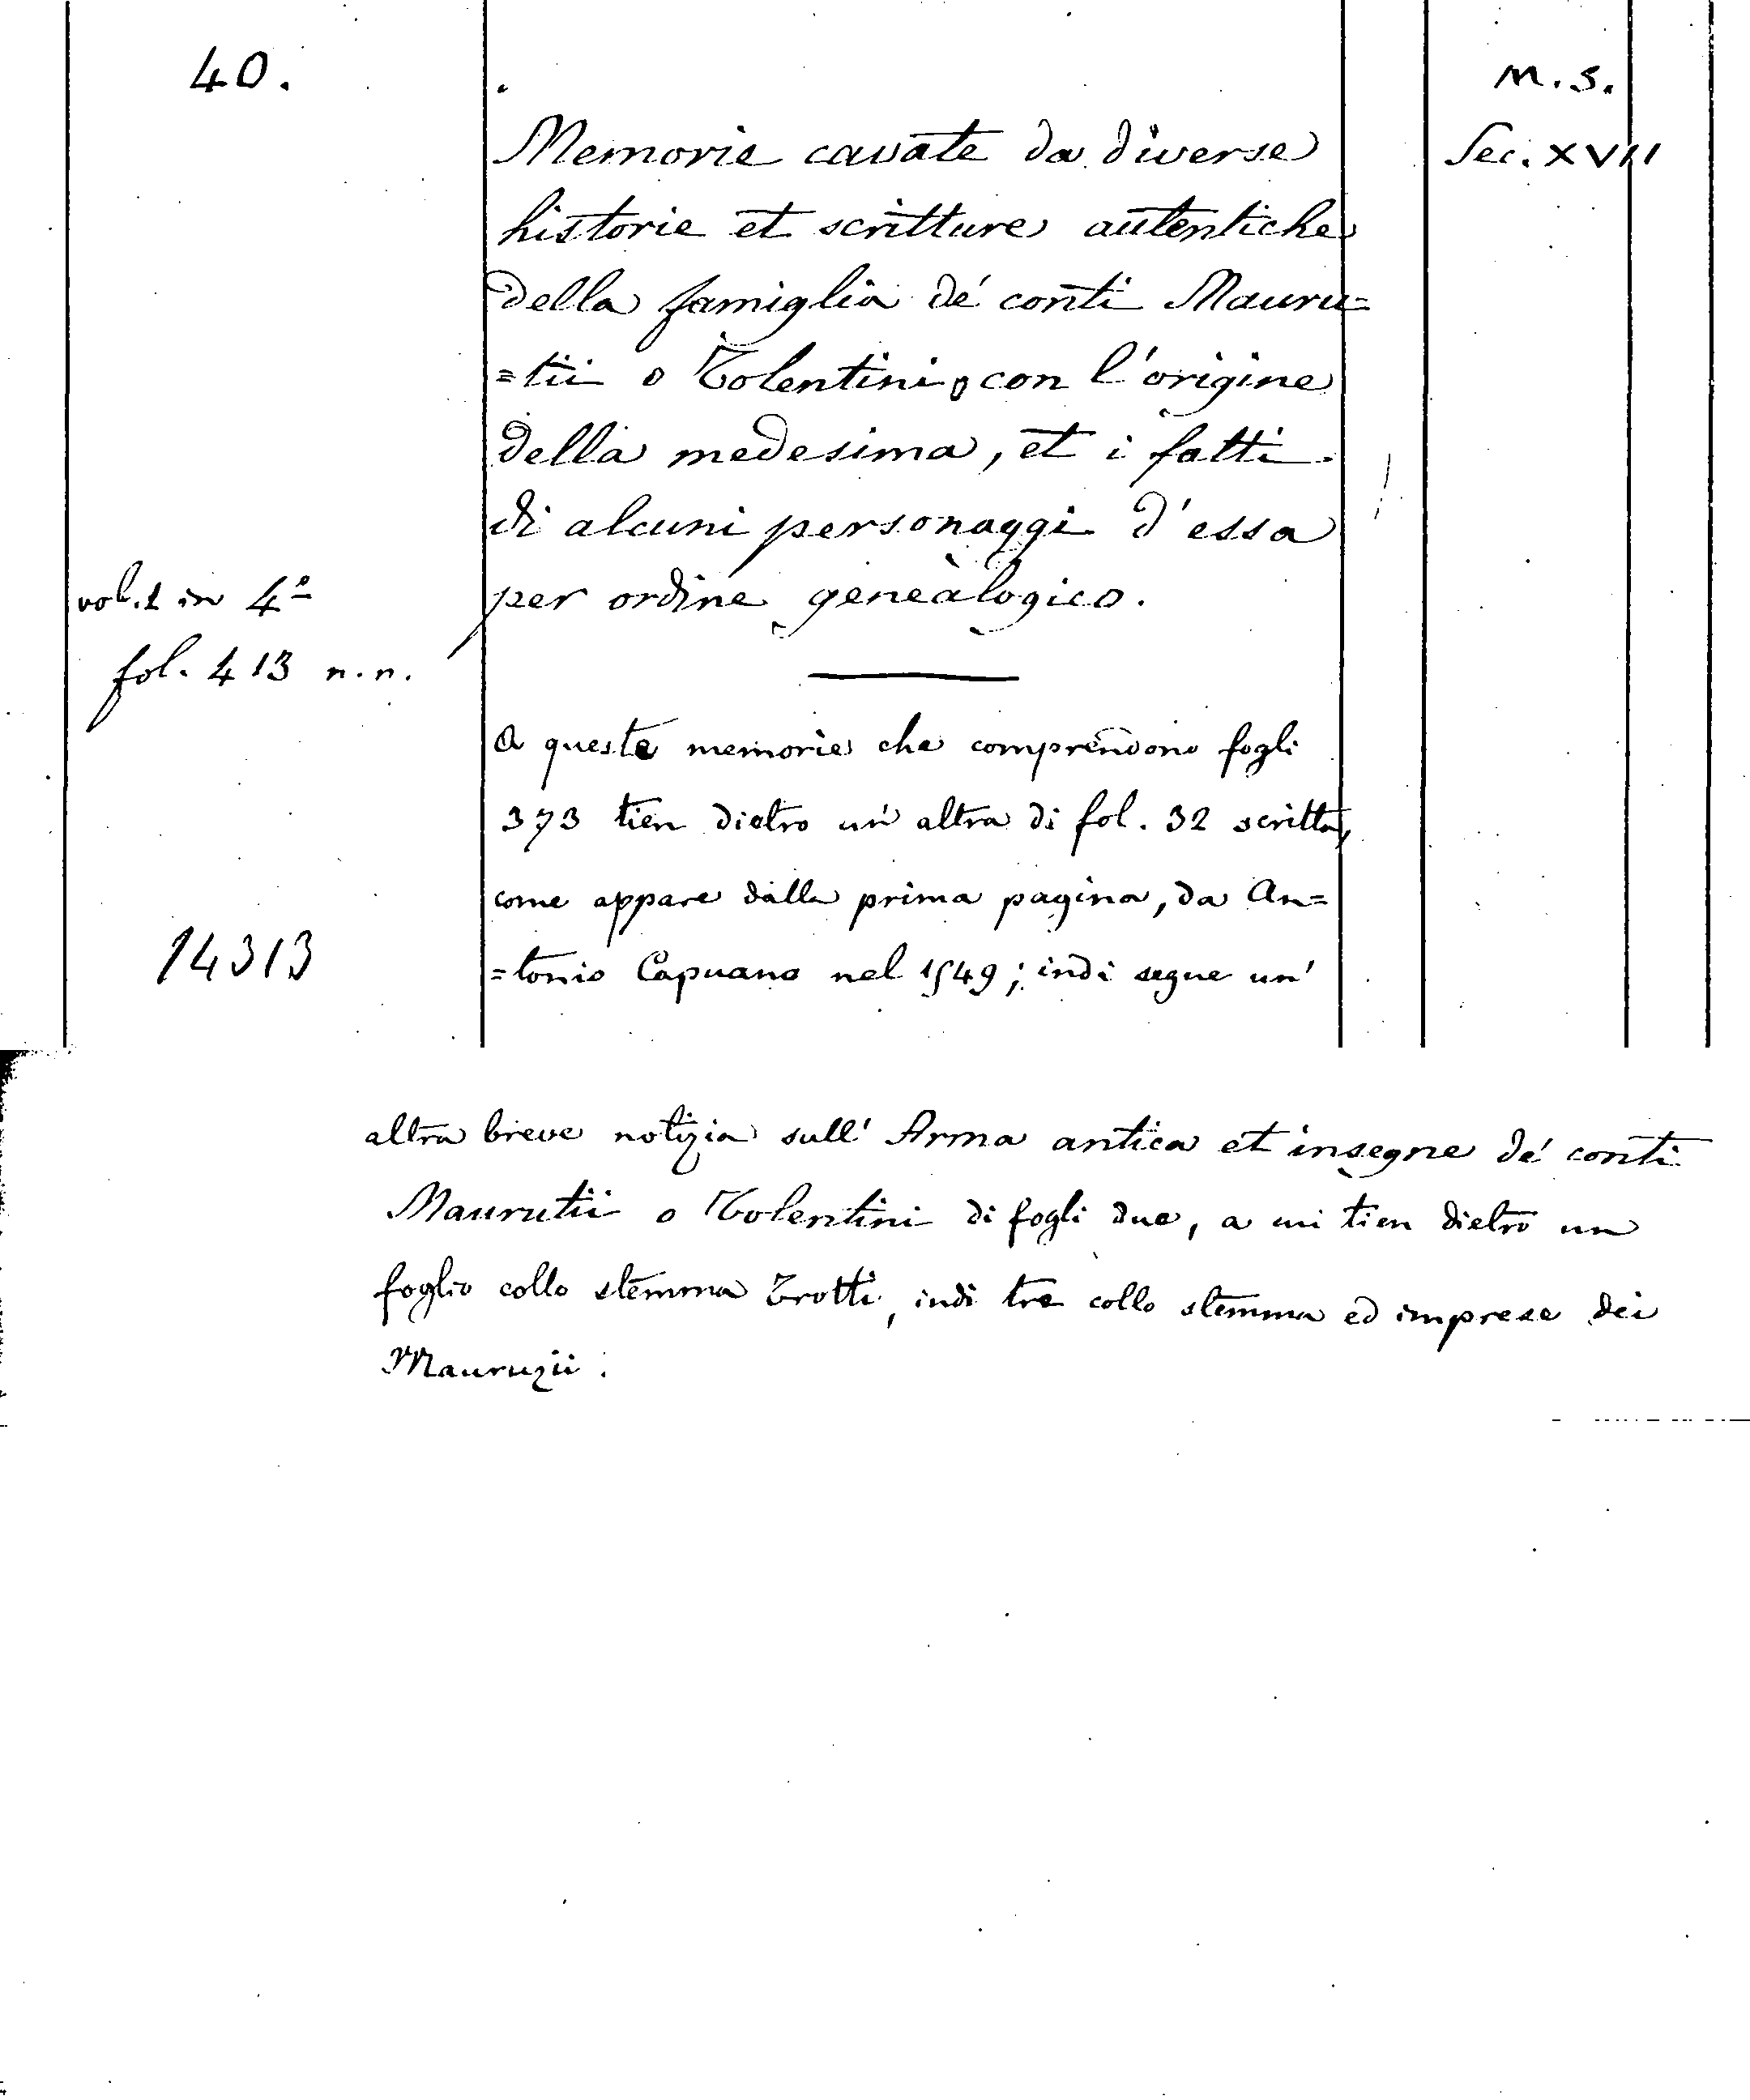 40.
m. s.
Sec. XVII
Memorie cavate da diverse
historie et scritture autentiche
della famiglia de' conti Mauru=
=tii o Tolentini, con l'origine
della medesima, et i fatti
di alcuni personaggi d'essa
per ordine genealogico.
vol. 1 in 4º
fol. 413 n. n.
A queste memorie che comprendono fogli
373 tien dietro un' altra di fol. 32 scritta,
come appare dalla prima pagina, da An=
=tonio Capuano nel 1549; indi segue un'
14313
altra breve notizia sull' Arma antica et insegne de' conti
Maurutii o Tolentini di fogli due, a cui tien dietro un
foglio collo stemma Trotti, indi tre collo stemma ed imprese dei
Mauruzii.